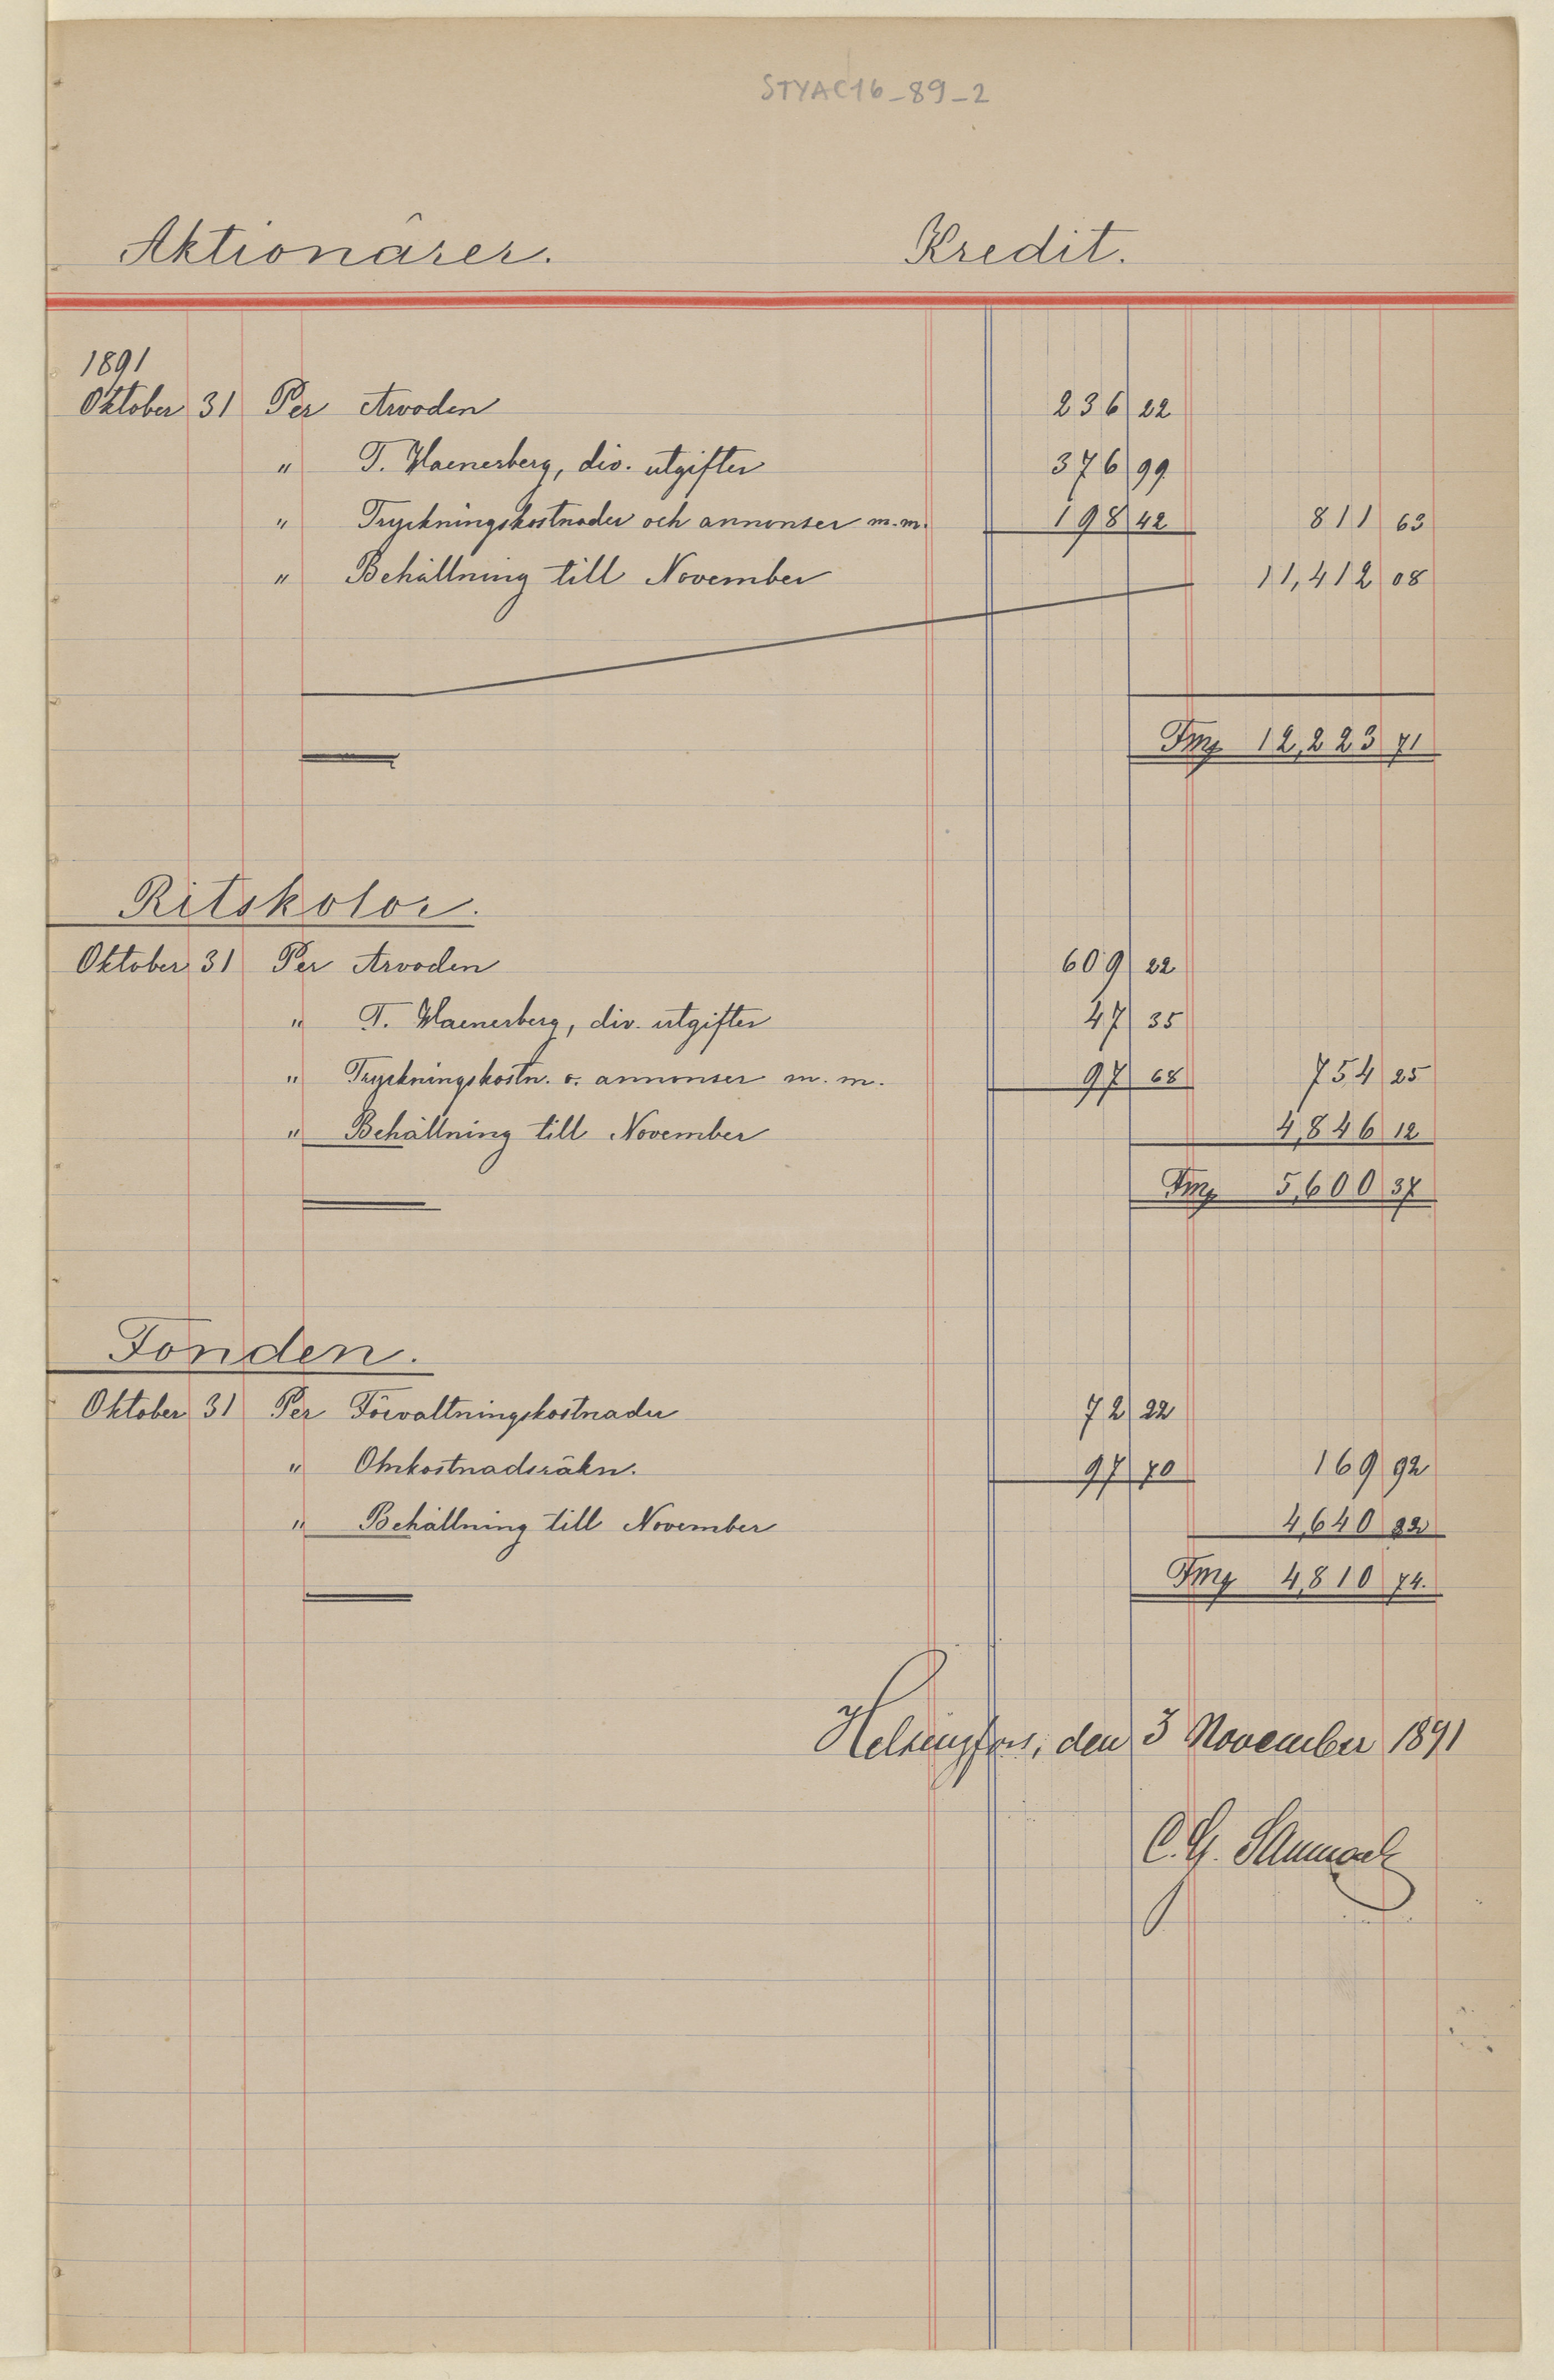 STYAC16_89_2
Aktionärer. Kredit.
1891
Oktober 31 Per Arvoden 236 22
" T. Waenerberg, div. utgifter 376 99
" Tryckningskostnader och annonser m.m. 198 42 811 63
" Behållning till November 11,412 08
Fmg 12,223 71
Ritskolor.
Oktober 31 Per Arvoden 609 22
" T. Waenerberg, div. utgifter 47 35
" Tryckningskostn. o. annonser m. m. 97 68 754 25
" Behållning till November 4,846 12
Fmg 5,600 37
Fonden.
Oktober 31 Per Förvaltningskostnader 72 22
" Omkostnadsräkn. 97 70 169 92
" Behållning till November 4,640 82
Fmg 4,810 74.
Helsingfors, den 3 November 1891
C. G.